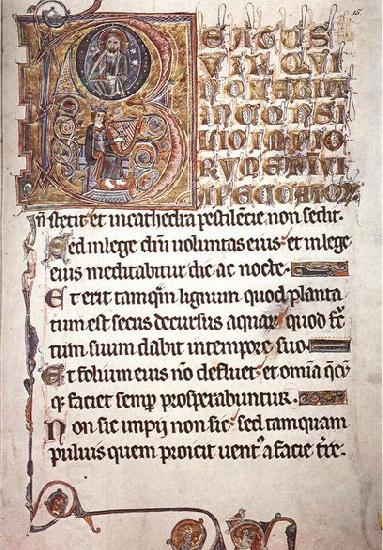 15.
B EATUS
VIR QVI
NON ABIIT
IN CONSI
LIO IMPIO
RVM ET IN VI
A PECCATORV
in stetit et in cathedra pestilecie non sedit.
Sed in lege dni voluntas eius et in lege
eius meditabitur die ac nocte.
Et erit tamqm lignum quod planta
tum est secus decursus aquar quod fc
tum suum dabit in tempore suo
Et folium eius no defluet et omia qcq
q faciet semp prosperabuntur.
Non sic impij non sic sed tamquam
puluis quem proicit uent a facie tre.